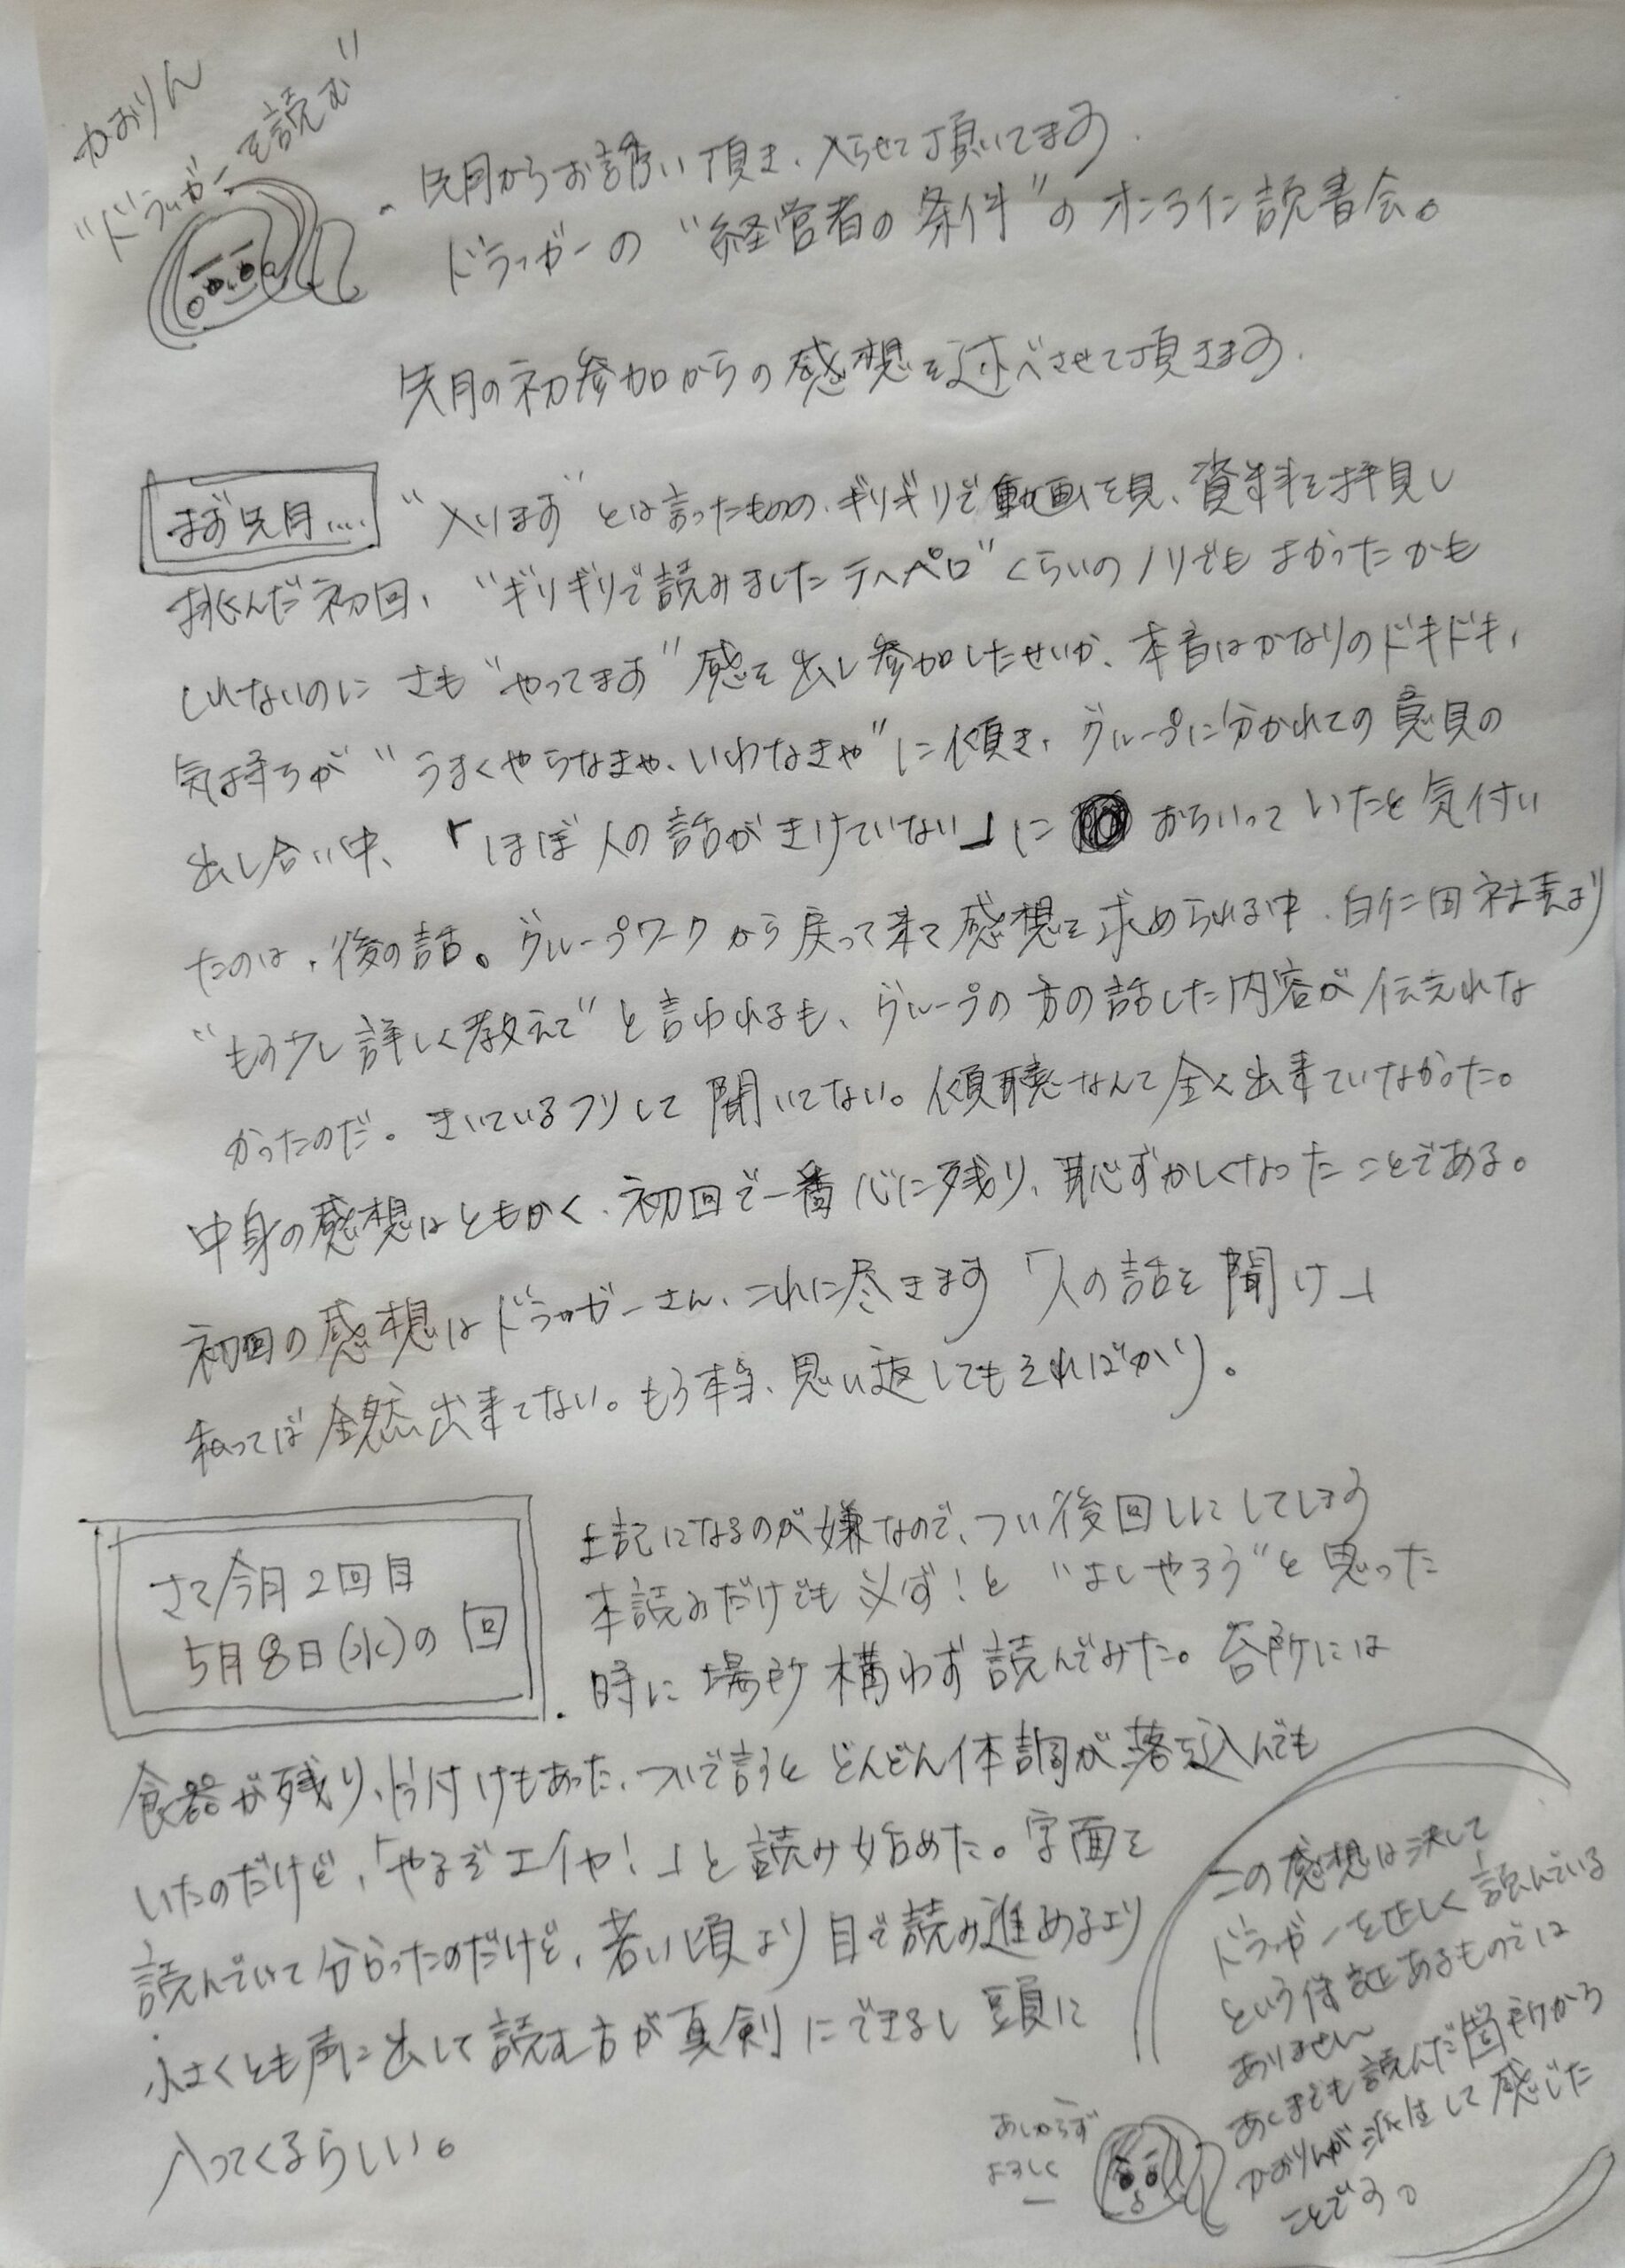 かおりん
"ドラッガーを読む"
・先月からお誘い頂き、入らせて頂いてます.
ドラッガーの"経営者の条件"のオンライン読書会。
先月の初参加からの感想を述べさせて頂きます.
まず先月....
"入ります"とは言ったものの、ギリギリで動画を見、資料を拝見し
挑んだ初回、"ギリギリで読みましたテヘペロ"くらいのノリでもよかったかも
しれないのに さも"やってます"感を出し参加したせいか、本音はかなりのドキドキ、
気持ちが"うまくやらなきゃ、いわなきゃ"に傾き、グループに分かれての意見の
出し合い中、「ほぼ人の話がきけていない」に おちいっていたと気付い
たのは、後の話。グループワークから戻って来て感想を求められる中、白仁田社長より
"もう少し詳しく教えて"と言われるも、グループの方の話した内容が伝えれな
かったのだ。きいているフリして聞いてない。傾聴なんて全く出来ていなかった。
中身の感想はともかく、初回で一番心に残り、恥ずかしくなったことである。
初回の感想はドラッガーさん、これに尽きます「人の話を聞け」
私ってば全然出来てない。もう本当、思い返してもそればかり。
さて今月2回目
5月8日(水)の回
上記になるのが嫌なので、つい後回しにしてしまう
本読みだけでも必ず!と"よしやろう"と思った
時に場所構わず読んでみた。台所には
食器が残り、片付けもあった、ついで言うとどんどん体調が落ち込んでも
いたのだけど、「やるぞエイヤ!」と読み始めた。字面を
読んでいて分かったのだけど、若い頃より目で読み進めるより
小さくとも声に出して読む方が真剣にできるし頭に
入ってくるらしい。
この感想は決して
ドラッガーを正しく読んでいる
という保証あるものでは
ありません
あくまでも読んだ箇所から
かおりんが派生して感じた
ことです。
あしからず
よろしく